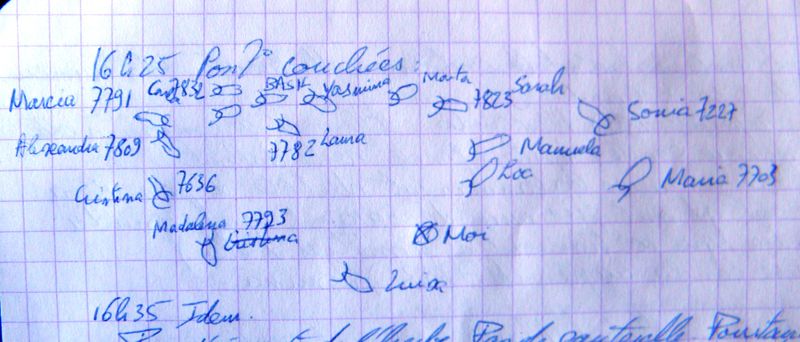 16h25 Pon7° couchées :
Marcia 7791 7832 BASK Yasmina Marta 7823 Sarah Sonia 7227
Alexandra 7809 7782 Laura Manuela
Cristina 7636 Loa Maria 7703
Madalena 7793
Moi
Luisa
16h35 Idem.